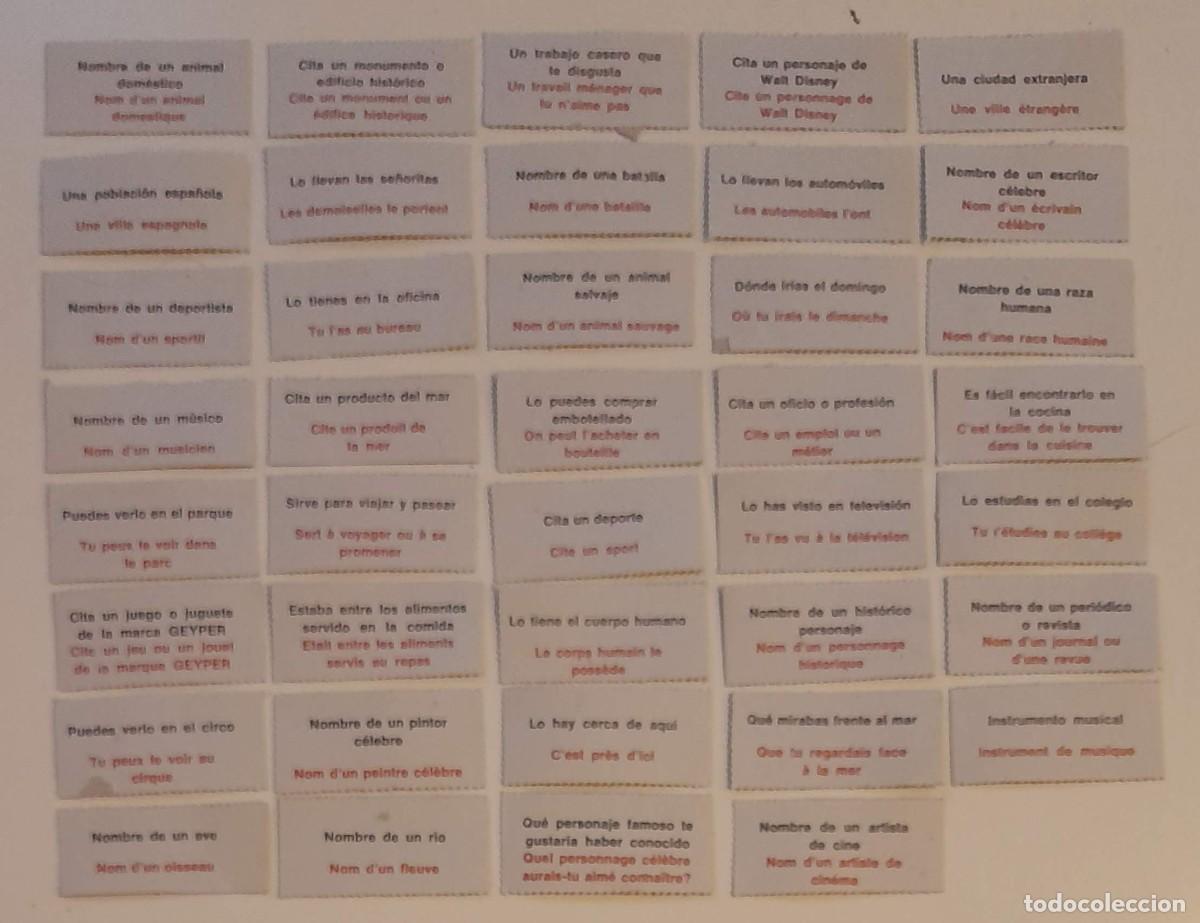 Nombre de un animal
doméstico
Nom d'un animal
domestique
Cita un monumento o
edificio histórico
Cite un monument ou un
édifice historique
Un trabajo casero que
te disgusta
Un travail ménager que
tu n'aime pas
Cita un personaje de
Walt Disney
Cite un personnage de
Walt Disney
Una ciudad extranjera
Une ville étrangère
Una población española
Une ville espagnole
Lo llevan las señoritas
Les demoiselles le portent
Nombre de una batalla
Nom d'une bataille
Lo llevan los automóviles
Les automobiles l'ont
Nombre de un escritor
célebre
Nom d'un écrivain
célèbre
Nombre de un deportista
Nom d'un sportif
Lo tienes en la oficina
Tu l'as au bureau
Nombre de un animal
salvaje
Nom d'un animal sauvage
Dónde irías el domingo
Où tu irais le dimanche
Nombre de una raza
humana
Nom d'une race humaine
Nombre de un músico
Nom d'un musicien
Cita un producto del mar
Cite un produit de
la mer
Lo puedes comprar
embotellado
On peut l'acheter en
bouteille
Cita un oficio o profesión
Cite un emploi ou un
métier
Es fácil encontrarlo en
la cocina
C'est facile de le trouver
dans la cuisine
Puedes verlo en el parque
Tu peux le voir dans
le parc
Sirve para viajar y pasear
Sert à voyager ou à se
promener
Cita un deporte
Cite un sport
Lo has visto en televisión
Tu l'as vu à la télévision
Lo estudias en el colegio
Tu l'étudies au collège
Cita un juego o juguete
de la marca GEYPER
Cite un jeu ou un jouet
de la marque GEYPER
Estaba entre los alimentos
servido en la comida
Etait entre les aliments
servis au repas
Lo tiene el cuerpo humano
Le corps humain le
possède
Nombre de un histórico
personaje
Nom d'un personnage
historique
Nombre de un periódico
o revista
Nom d'un journal ou
d'une revue
Puedes verlo en el circo
Tu peux le voir au
cirque
Nombre de un pintor
célebre
Nom d'un peintre célèbre
Lo hay cerca de aquí
C'est près d'ici
Qué mirabas frente al mar
Que tu regardais face
à la mer
Instrumento musical
Instrument de musique
Nombre de un ave
Nom d'un oisseau
Nombre de un rio
Nom d'un fleuve
Qué personaje famoso te
gustaria haber conocido
Quel personnage célèbre
aurais-tu aimé connaître?
Nombre de un artista
de cine
Nom d'un artiste de
cinéma
todocoleccion